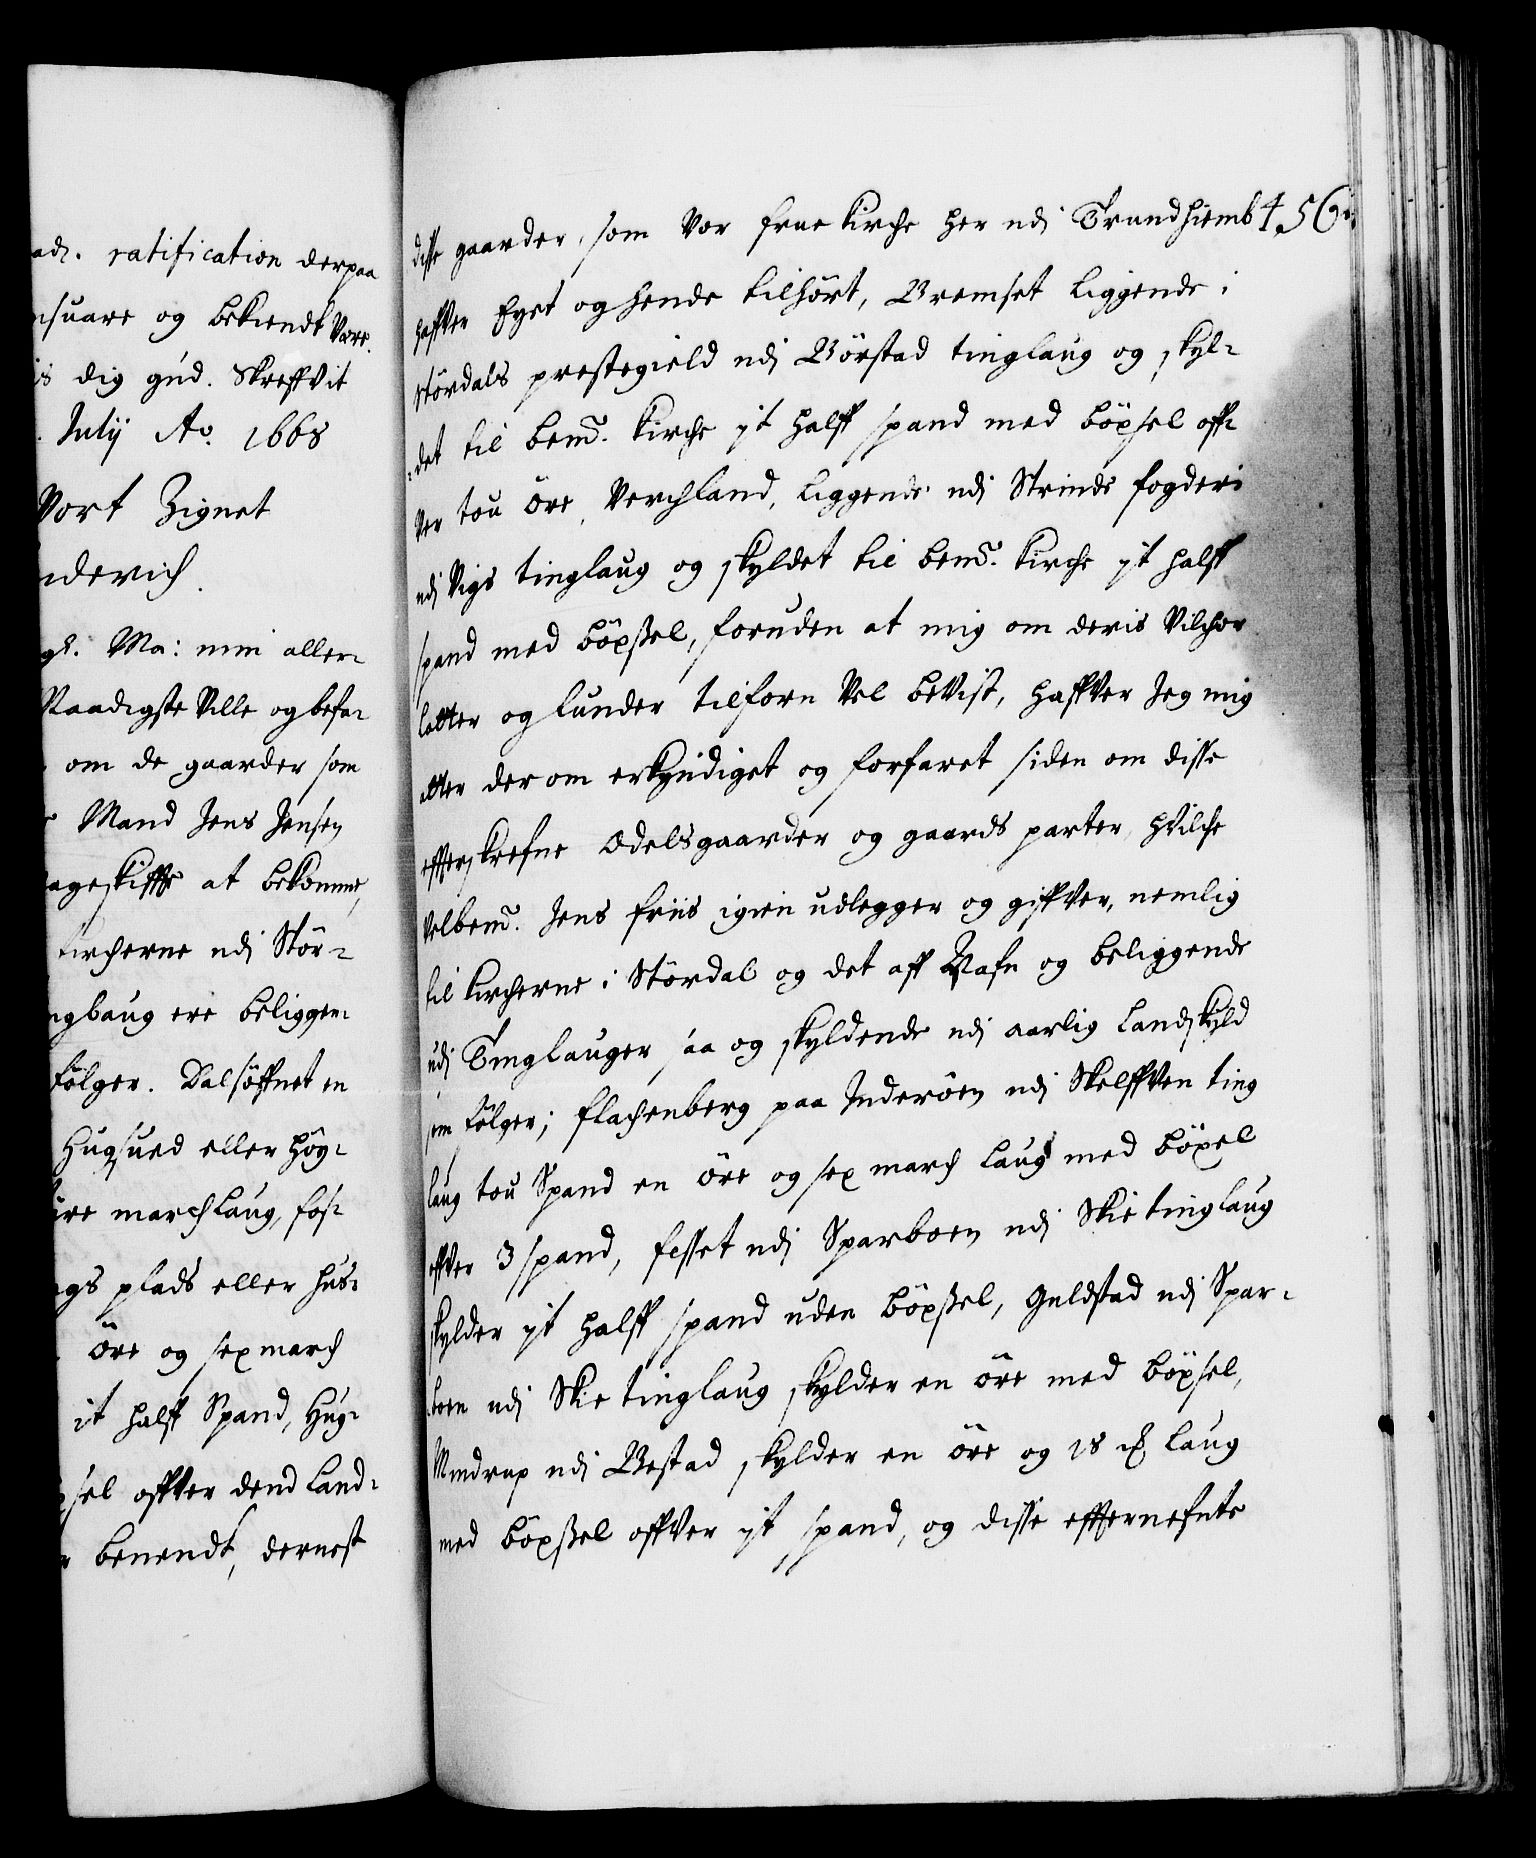 ads. ratification derpaa
nsuare og bekiendt Vare.
is dig gud. Skreffvit
. Julij Ao. 1668
Vort Zignet
iderich.
gs. Ma: min aller-
Naadigste Ville og befa-
om de gaarder som
Mand Jens Jensen
ageskiffte at bekomme,
kircherne udj Stör-
ngbaug ere beliggen-
fölger. Dalsöffnet en
Hugsued eller Höy-
ire march Laug, fos-
ngs plads eller hus-
öre og sex march
it halff Spand, Hug-
sel offver dend Land-
benendt, dernest
456.
disse gaarder, som Vor frue kirche her udj Trundhiemb
haffver Eyet og hende tilhört, Bremset liggende i
stördals prestegield udj Börstad tinglaug og skyl-
det til bemt. kirche it halff spand med böxsel off-
ver tou öre, Verchland, liggende udj Strinde fogderi
udj Vigs tinglaug og skyldet til bemt. kirche it halff
spand med böxssel, foruden at mig om deris Vilchor
latter og lunder tilforn Vel bevist, haffver Jeg mig
atter der om erkyndiget og forfaret siden om disse
effterskrefne Odelsgaarder og gaards parter, hvilche
velbemt. Jens friis igien udlegger og giffver, nemlig
til kircherne i Stördal og det aff Nafn og beliggende
udj Tinglauger saa og skyldende udj aarlig Landskyld
som fölger; flachenberg paa Inderöen udj Skelffven ting
laug tou Spand en öre og sex march laug med böxel
offver 3 spand, fesset udj Sparboen udj Skie tinglaug
skylder it halff spand uden böxssel, Guldstad udj Spar-
boen udj Skie tinglaug skylder en öre med böxsel,
Mindrup udj Bestad skylder en öre og 18 laug
med böxssel offver it spand, og disse efftternefnte